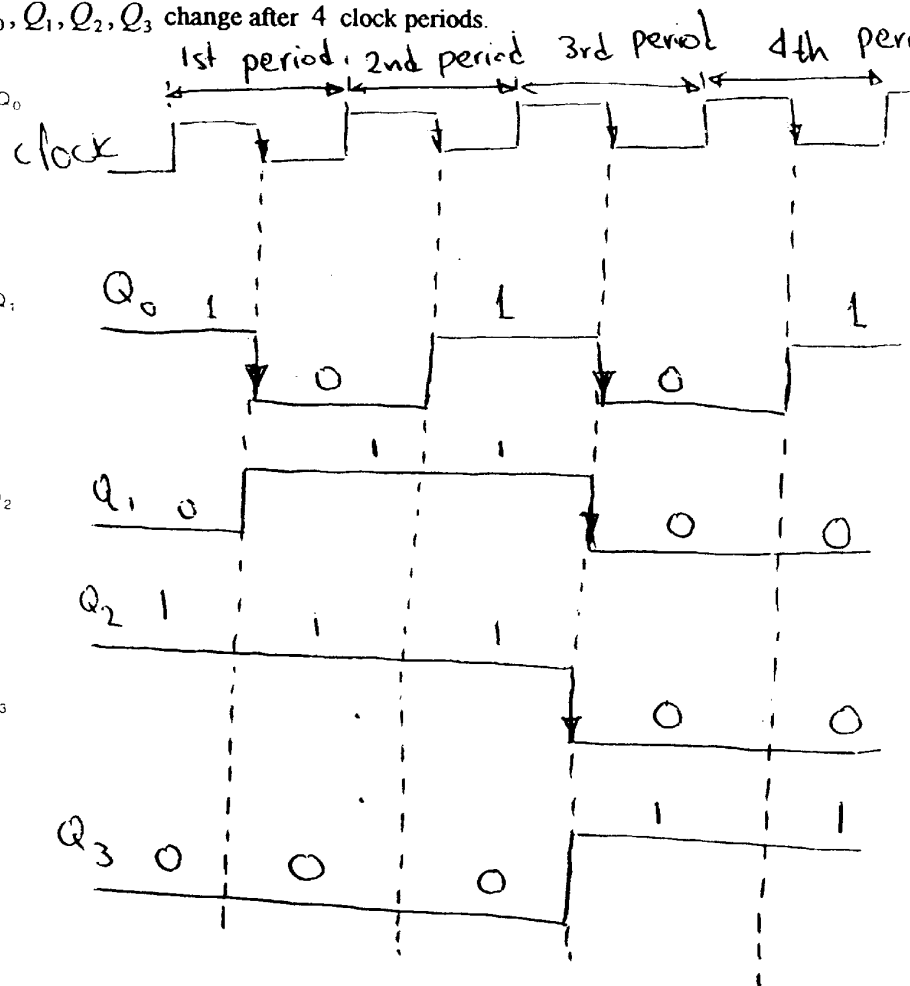 , Q₁, Q₂, Q₃ change after 4 clock periods.
1st period. 2nd period 3rd period 4th
Q₀
clock
Q₀ 1 0 1 0 1
Q₁ 0 1 1 0 0
Q₂ 1 1 1 0 0
Q₃ 0 0 0 1 1